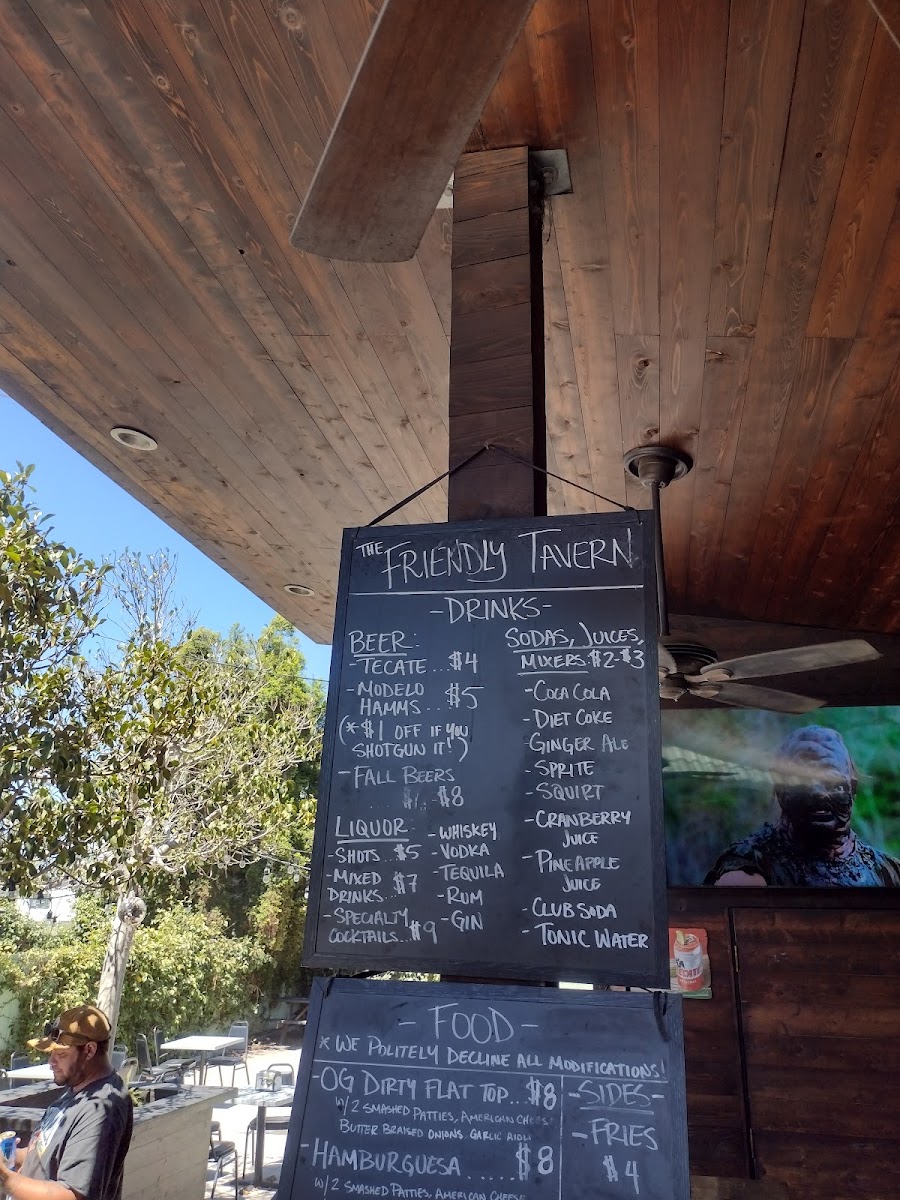 THE FRIENDLY TAVERN
-DRINKS-
BEER:
-TECATE...$4
-MODELO
HAMMS... $5
(*$1 OFF IF YOU
SHOTGUN IT!)
-FALL BEERS
$8
LIQUOR
-SHOTS...$5
-MIXED
DRINKS... $7
-SPECIALTY
COCKTAILS...$9
-WHISKEY
-VODKA
-TEQUILA
-RUM
-GIN
SODAS, JUICES,
MIXERS $2-$3
-COCA COLA
-DIET COKE
-GINGER ALE
-SPRITE
-SQUIRT
-CRANBERRY
JUICE
-PINEAPPLE
JUICE
-CLUB SODA
-TONIC WATER
-FOOD-
*WE POLITELY DECLINE ALL MODIFICATIONS!
-OG DIRTY FLAT TOP...$8
W/2 SMASHED PATTIES, AMERICAN CHEESE
BUTTER BRAISED ONIONS, GARLIC AIOLI
-HAMBURGUESA
.....$8
W/2 SMASHED PATTIES, AMERICAN CHEESE
-SIDES-
-FRIES
$4